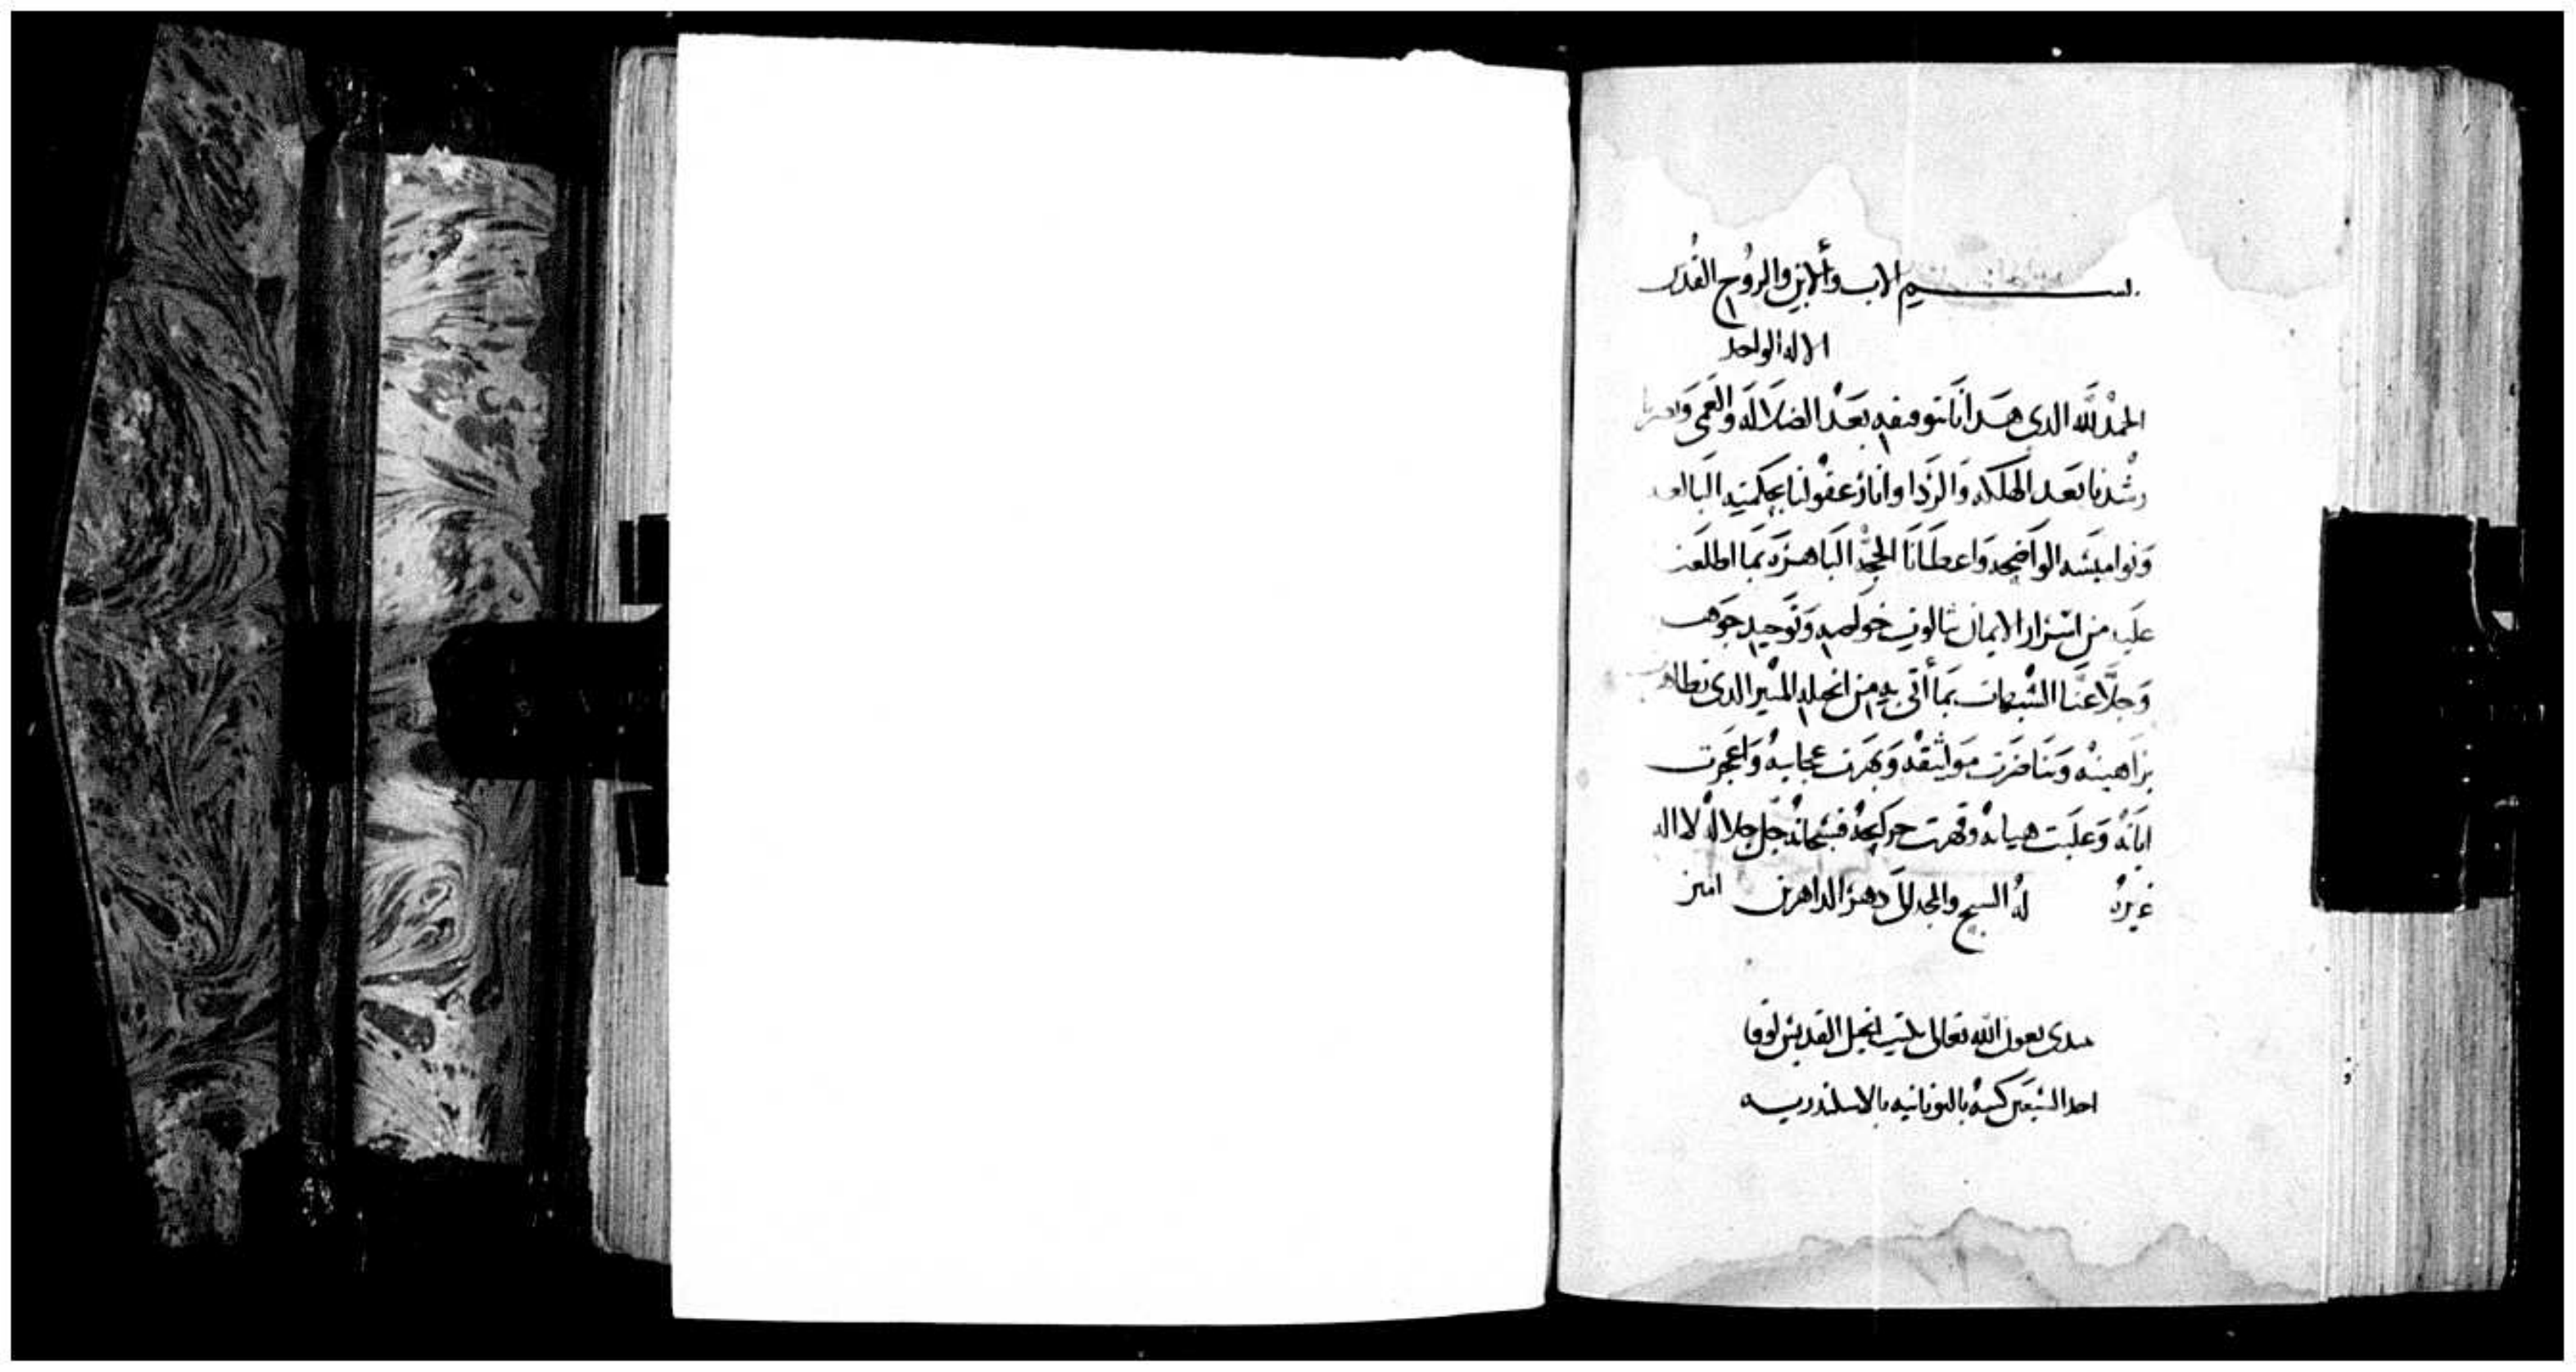 بسم الاب وألابن والروُح القُدس
الاله الواحد
الحمدْ للّه الدى هَدَانَا بتوفيقهِ بَعَدْ الضلالَه والعَمى وَبصرنا
رشْدنا بَعَد الهلكه وَالرَدا وانارَ عقوْلنا بحِكمتهِ البالغه
وَنواميسَه الوَاضحه وَاعطَانَا الحججْ البَاهرَه بمَا اطلعنا
عليَه من اسْرَار الايمان بثالوث خوَاصه وَتوَحيد جوَهره
وَجلاَ عنَّا الشْبهات بمَا أتى بهِ من انجيله المنْير الدى تظاهرت
برَاهينهْ وَتنَاصَرَت موَاثيقهْ وَبهَرَت عجايبهْ وَاعجَزت
ايَاتهْ وَغلبَت وقهرت فسْبحانهْ جَل جلالهْ لا اله
غيرهُ لهُ السبح والمجد الى دهرْ الداهرين امين
نبتدى بعون اللّه تعالى بكتب انجيل القديسْ لوقا
احد السْبعين كتبهُ باليونانيه بالاسكندريه